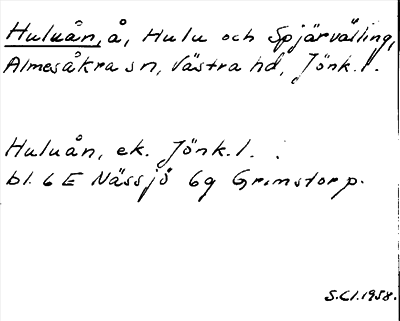 Huluån, å, Hulu och Spjärvälling,
Almesåkra sn, Västra hd, Jönk.l.
Huluån, ek. Jönk.l.
bl. 6 E Nässjö 6g Grimstorp.
S.Cl.1958.